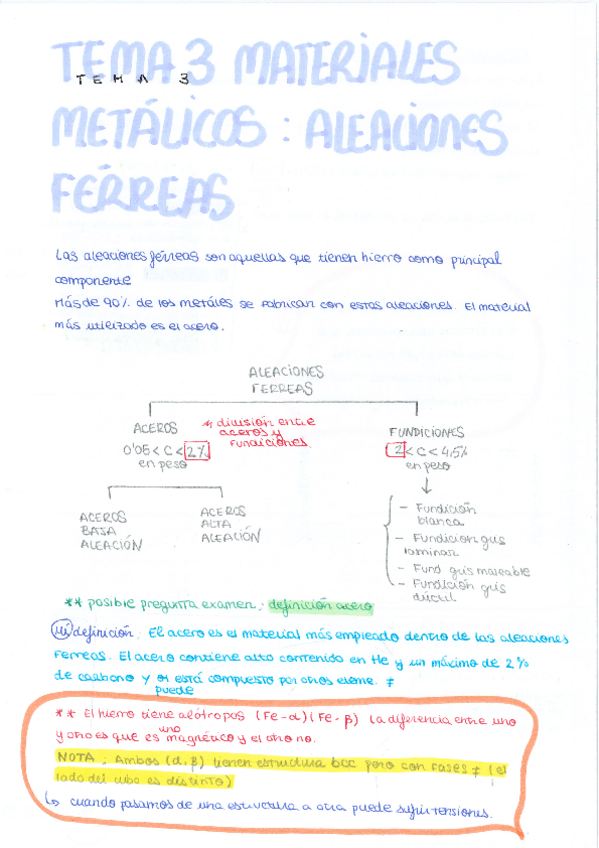 TEMA 3 MATERIALES
TEMA 3
METÁLICOS : ALEACIONES
FÉRREAS
Las aleaciones férreas son aquellas que tienen hierro como principal
componente
Más de 90% de los metáles se fabrican con estas aleaciones. El material
más utilizado es el acero.
ALEACIONES
FERREAS
ACEROS
0'05 < C < 2%
en peso
* división entre
aceros y
fundiciones.
FUNDICIONES
2 < C < 4,5%
en peso
ACEROS
BAJA
ALEACIÓN
ACEROS
ALTA
ALEACIÓN
- Fundición
blanca
- Fundición gris
laminar
- Fund gris maleable
- Fundición gris
dúctil
** posible pregunta examen: definición acero
Mi definición. El acero es el material más empleado dentro de las aleaciones
ferreas. El acero contiene alto contenido en He y un máximo de 2%
de carbono y está compuesto por otros eleme. ≠
puede
** El hierro tiene alótropos (Fe-α) (Fe-β) la diferencia entre uno
y otro es que es uno magnético y el otro no.
NOTA: Ambos (α, β) tienen estructura bcc pero con fases ≠ (el
lado del cubo es distinto)
↳ cuando pasamos de una estructura a otra puede sufrir tensiones.